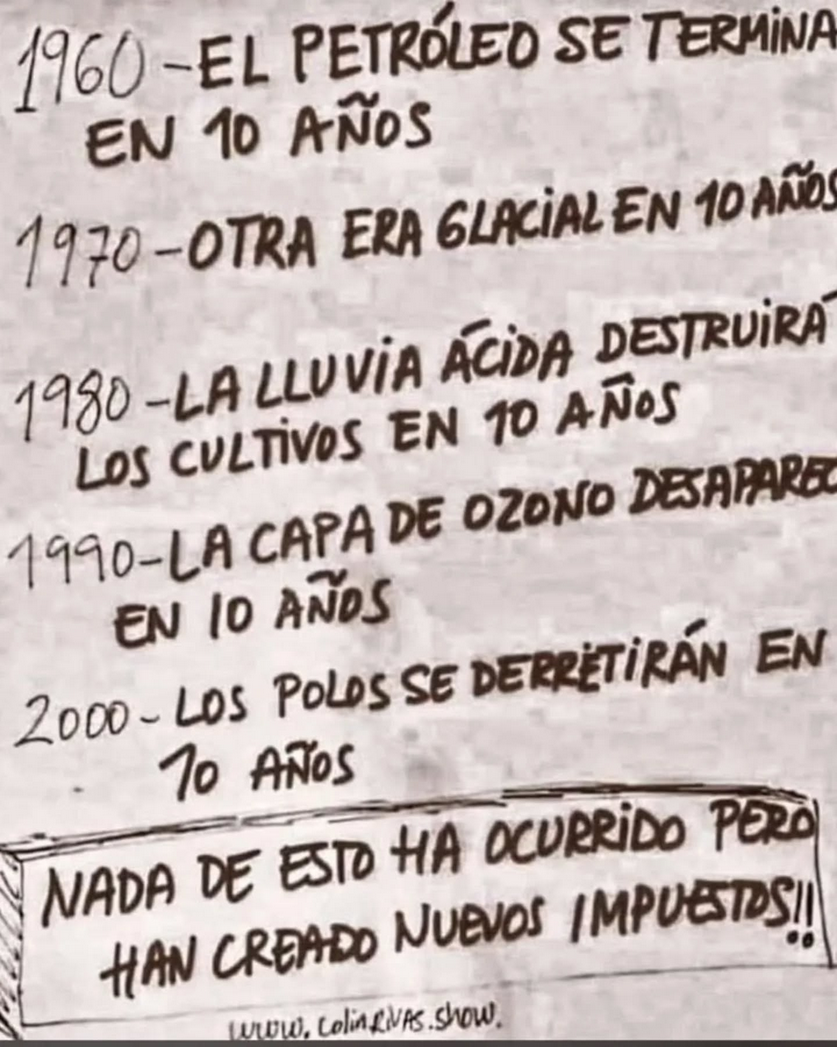 1960-EL PETRÓLEO SE TERMINA
EN 10 AÑOS
1970-OTRA ERA GLACIAL EN 10 AÑOS
1980-LA LLUVIA ÁCIDA DESTRUIRÁ
LOS CULTIVOS EN 10 AÑOS
1990-LA CAPA DE OZONO DESAPAREC
EN 10 AÑOS
2000- LOS POLOS SE DERRETIRÁN EN
10 AÑOS
NADA DE ESTO HA OCURRIDO PERO
HAN CREADO NUEVOS IMPUESTOS!!
www.colinRivAS.show.